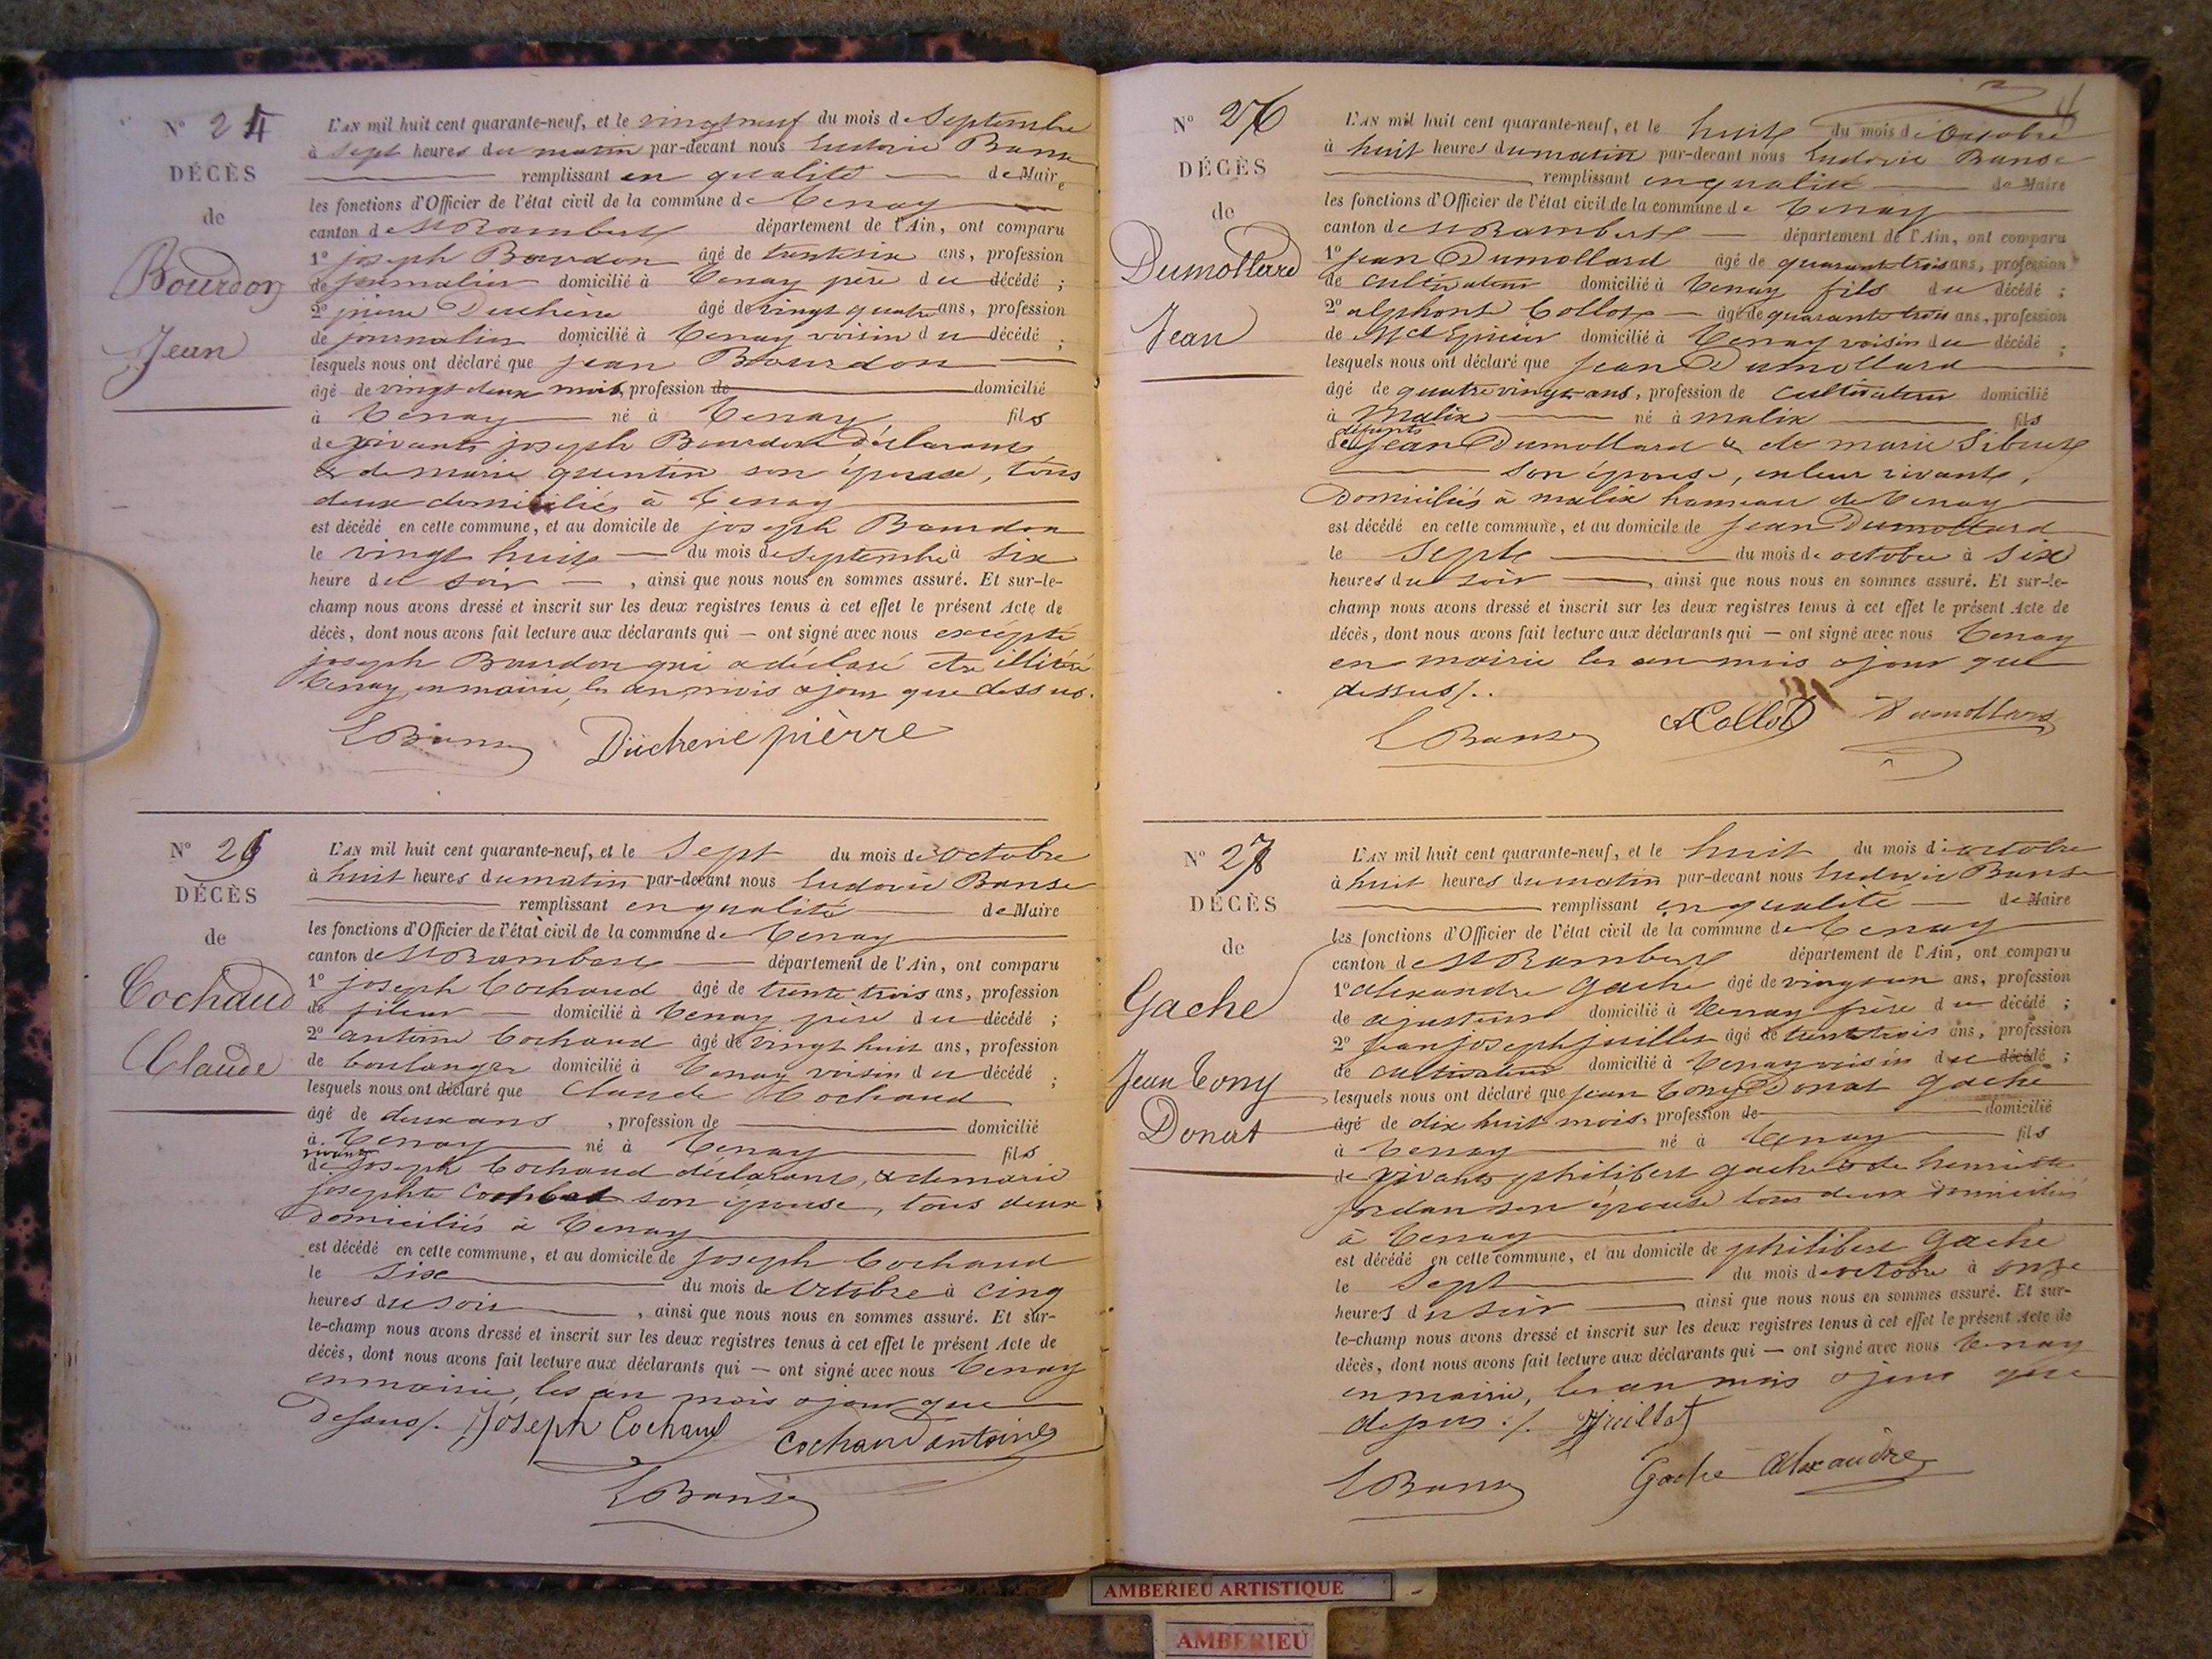 N° 24
DÉCÈS
de
Bourdon
Jean
L'AN mil huit cent quarante-neuf, et le vingt neuf du mois de Septembre
à sept heures du matin par-devant nous Ludovic Banse
remplissant en qualité de Maire
les fonctions d'Officier de l'état civil de la commune de Tenay
canton de St Rambert département de l'Ain, ont comparu
1° joseph Bourdon âgé de trente six ans, profession
de journalier domicilié à Tenay père du décédé ;
2° pierre Duchène âgé de vingt quatre ans, profession
de journalier domicilié à Tenay voisin du décédé ;
lesquels nous ont déclaré que jean Bourdon
âgé de vingt deux mois, profession de domicilié
à Tenay né à Tenay fils
de vivants joseph Bourdon déclarant,
& de marie quentin son épouse, tous
deux domiciliés à Tenay
est décédé en cette commune, et au domicile de joseph Bourdon
le vingt huit du mois de septembre à six
heure du soir , ainsi que nous nous en sommes assuré. Et sur-le-
champ nous avons dressé et inscrit sur les deux registres tenus à cet effet le présent Acte de
décès, dont nous avons fait lecture aux déclarants qui — ont signé avec nous excepté
joseph Bourdon qui a déclaré être illitéré
Tenay, en mairie, les an, mois & jour que dessus.
L Banse Duchene pièrre
N° 25
DÉCÈS
de
Cochaud
Claude
L'AN mil huit cent quarante-neuf, et le Sept du mois de octobre
à huit heures du matin par-devant nous Ludovic Banse
remplissant en qualité de Maire
les fonctions d'Officier de l'état civil de la commune de Tenay
canton de St Rambert département de l'Ain, ont comparu
1° joseph Cochaud âgé de trente trois ans, profession
de fileur domicilié à Tenay père du décédé ;
2° antoine Cochaud âgé de vingt huit ans, profession
de boulanger domicilié à Tenay voisin du décédé ;
lesquels nous ont déclaré que Claude Cochaud
âgé de deux ans , profession de domicilié
à Tenay né à Tenay fils
vivants
de joseph Cochaud déclarant, & de marie
josephte son épouse, tous deux
domiciliés à Tenay
est décédé en cette commune, et au domicile de joseph Cochaud
le six du mois de Octobre à cinq
heures du soir , ainsi que nous nous en sommes assuré. Et sur-
le-champ nous avons dressé et inscrit sur les deux registres tenus à cet effet le présent Acte de
décès, dont nous avons fait lecture aux déclarants qui — ont signé avec nous Tenay
en mairie, les an mois & jour que
dessus/. Joseph Cochaud Cochaud antoine
L Banse
N° 26
DÉCÈS
de
Dumollard
Jean
L'AN mil huit cent quarante-neuf, et le huit du mois de Octobre
à huit heures du matin par-devant nous Ludovic Banse
remplissant en qualité de Maire
les fonctions d'Officier de l'état civil de la commune de Tenay
canton de St Rambert département de l'Ain, ont comparu
1° jean Dumollard âgé de quarante trois ans, profession
de cultivateur domicilié à Tenay fils du décédé ;
2° alphonse Collot âgé de quarante trois ans, profession
de Md Epicier domicilié à Tenay voisin du décédé ;
lesquels nous ont déclaré que jean Dumollard
âgé de quatre vingt ans, profession de cultivateur domicilié
à Malix né à malix fils
défunts
de jean Dumollard & de marie Sibert
son épouse, en leur vivants,
Domiciliés à malix hameau de Tenay
est décédé en cette commune, et au domicile de jean Dumollard
le Septe du mois de octobre à six
heures du soir , ainsi que nous nous en sommes assuré. Et sur-le-
champ nous avons dressé et inscrit sur les deux registres tenus à cet effet le présent Acte de
décès, dont nous avons fait lecture aux déclarants qui — ont signé avec nous Tenay
en mairie les an mois & jour que
dessus/.
L Banse A Collot Dumollard
N° 27
DÉCÈS
de
Gache
Jean Tony
Donat
L'AN mil huit cent quarante-neuf, et le huit du mois de octobre
à huit heures du matin par-devant nous Ludovic Banse
remplissant en qualité de Maire
les fonctions d'Officier de l'état civil de la commune de Tenay
canton de St Rambert département de l'Ain, ont comparu
1° alexandre Gache âgé de vingt un ans, profession
de ajusteur domicilié à Tenay frère du décédé ;
2° jean joseph juillet âgé de trente trois ans, profession
de cultivateur domicilié à Tenay voisin du décédé ;
lesquels nous ont déclaré que jean Tony Donat Gache
âgé de dix huit mois, profession de domicilié
à Tenay né à Tenay fils
de vivants philibert gache & de henriette
jordan son épouse tous deux domiciliés
à Tenay
est décédé en cette commune, et au domicile de philibert Gache
le sept du mois de octobre à onze
heures du soir , ainsi que nous nous en sommes assuré. Et sur-
le-champ nous avons dressé et inscrit sur les deux registres tenus à cet effet le présent Acte de
décès, dont nous avons fait lecture aux déclarants qui — ont signé avec nous Tenay
en mairie, les an mois & jour que
dessus ./. Juillet
L Banse Gache Alexandre
AMBERIEU ARTISTIQUE
AMBERIEU